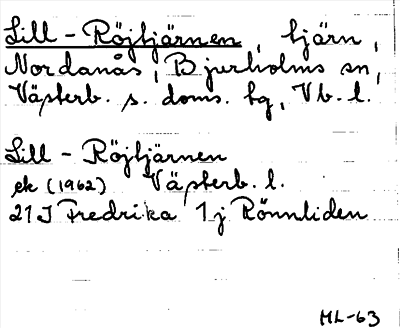 Lill-Röjtjärnen, tjärn,
Nordanås, Bjurholms sn,
Västerb. s. doms. tg, Vb. l.
Lill-Röjtjärnen
ek (1962) Västerb. l.
21 J Fredrika 1 j Rönnliden
ML-63